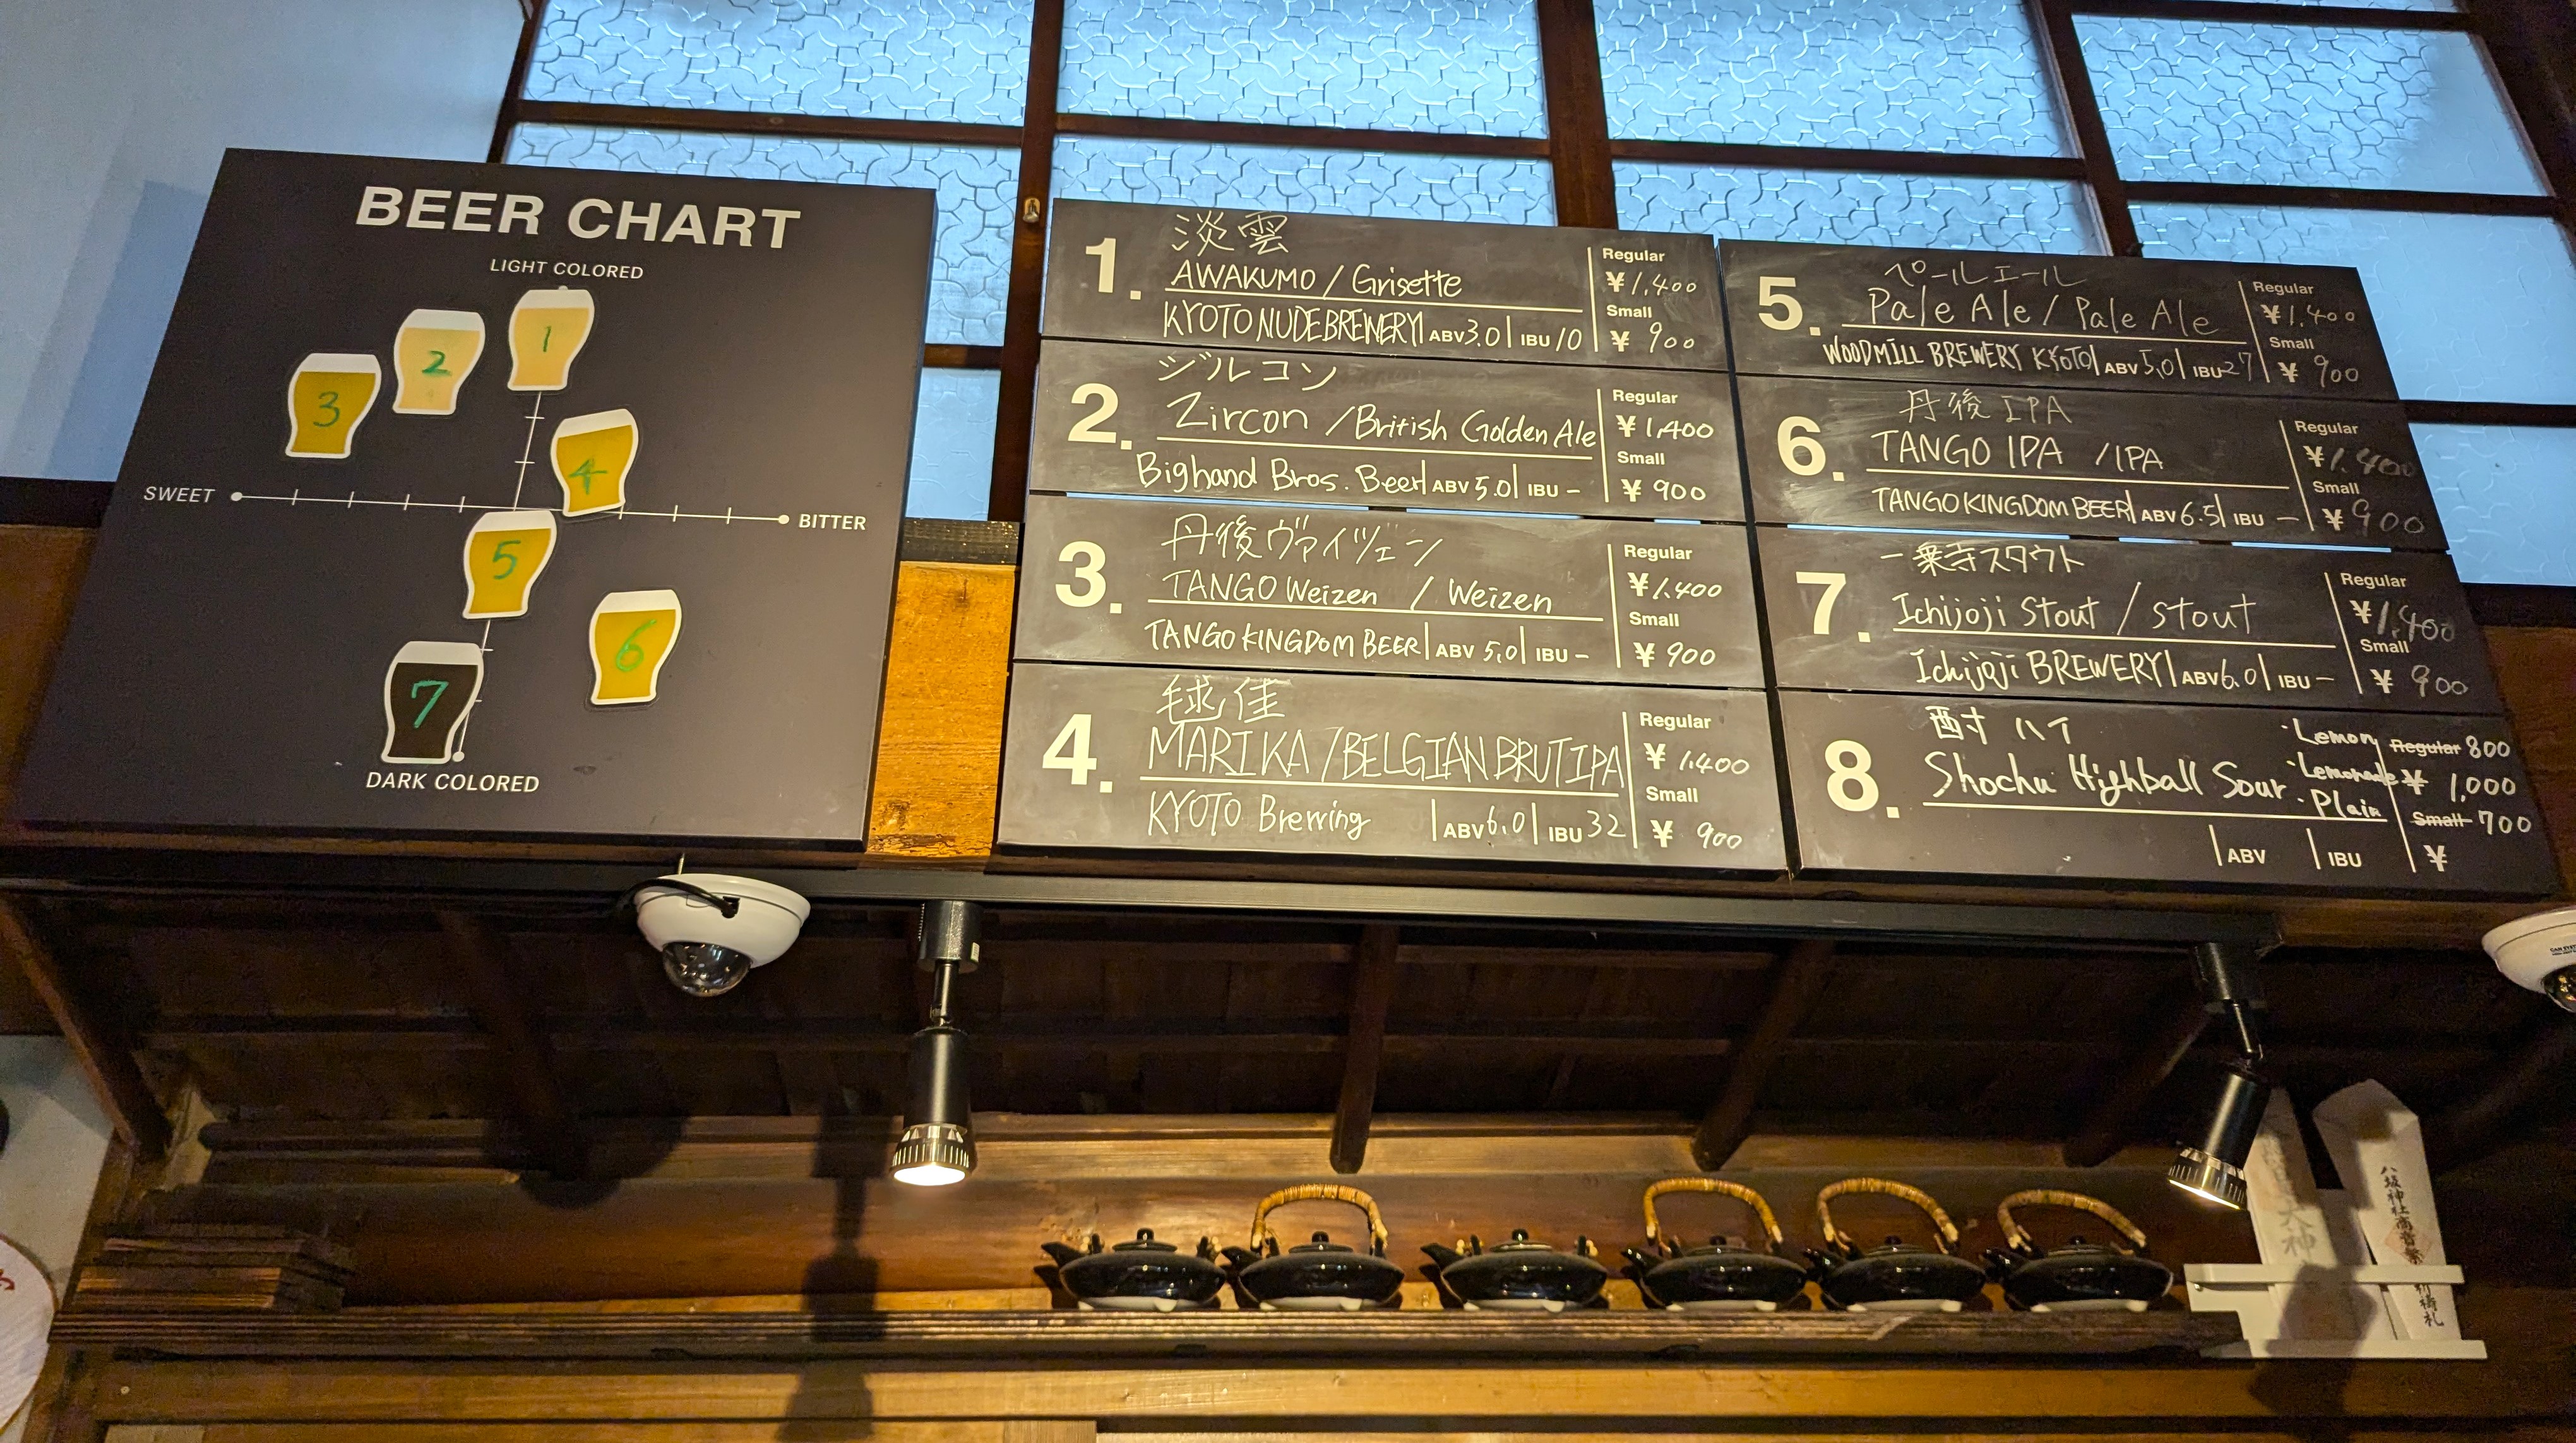 BEER CHART
LIGHT COLORED
1
2
3
4
SWEET
BITTER
5
6
7
DARK COLORED
1.
淡雲
AWAKUMO / Grisette
KYOTO NUDE BREWERY | ABV 3.0 | IBU 10
Regular
¥1,400
Small
¥ 900
2.
ジルコン
Zircon / British Golden Ale
Bighand Bros. Beer | ABV 5.0 | IBU -
Regular
¥1,400
Small
¥ 900
3.
丹後ヴァイツェン
TANGO Weizen / Weizen
TANGO KINGDOM BEER | ABV 5.0 | IBU -
Regular
¥1,400
Small
¥ 900
4.
毬佳
MARIKA / BELGIAN BRUT IPA
KYOTO Brewing | ABV 6.0 | IBU 32
Regular
¥ 1,400
Small
¥ 900
5.
ペールエール
Pale Ale / Pale Ale
WOODMILL BREWERY KYOTO | ABV 5.0 | IBU 27
Regular
¥1,400
Small
¥ 900
6.
丹後 IPA
TANGO IPA / IPA
TANGO KINGDOM BEER | ABV 6.5 | IBU -
Regular
¥1,400
Small
¥900
7.
一乗寺スタウト
Ichijoji Stout / Stout
Ichijoji BREWERY | ABV 6.0 | IBU -
Regular
¥1,400
Small
¥ 900
8.
酎ハイ
Shochu Highball Sour
・Lemon
・Lemonade
・Plain
Regular 800
¥ 1,000
Small 700
¥
ABV | IBU
大神
八坂神社商売繁 祈祷札